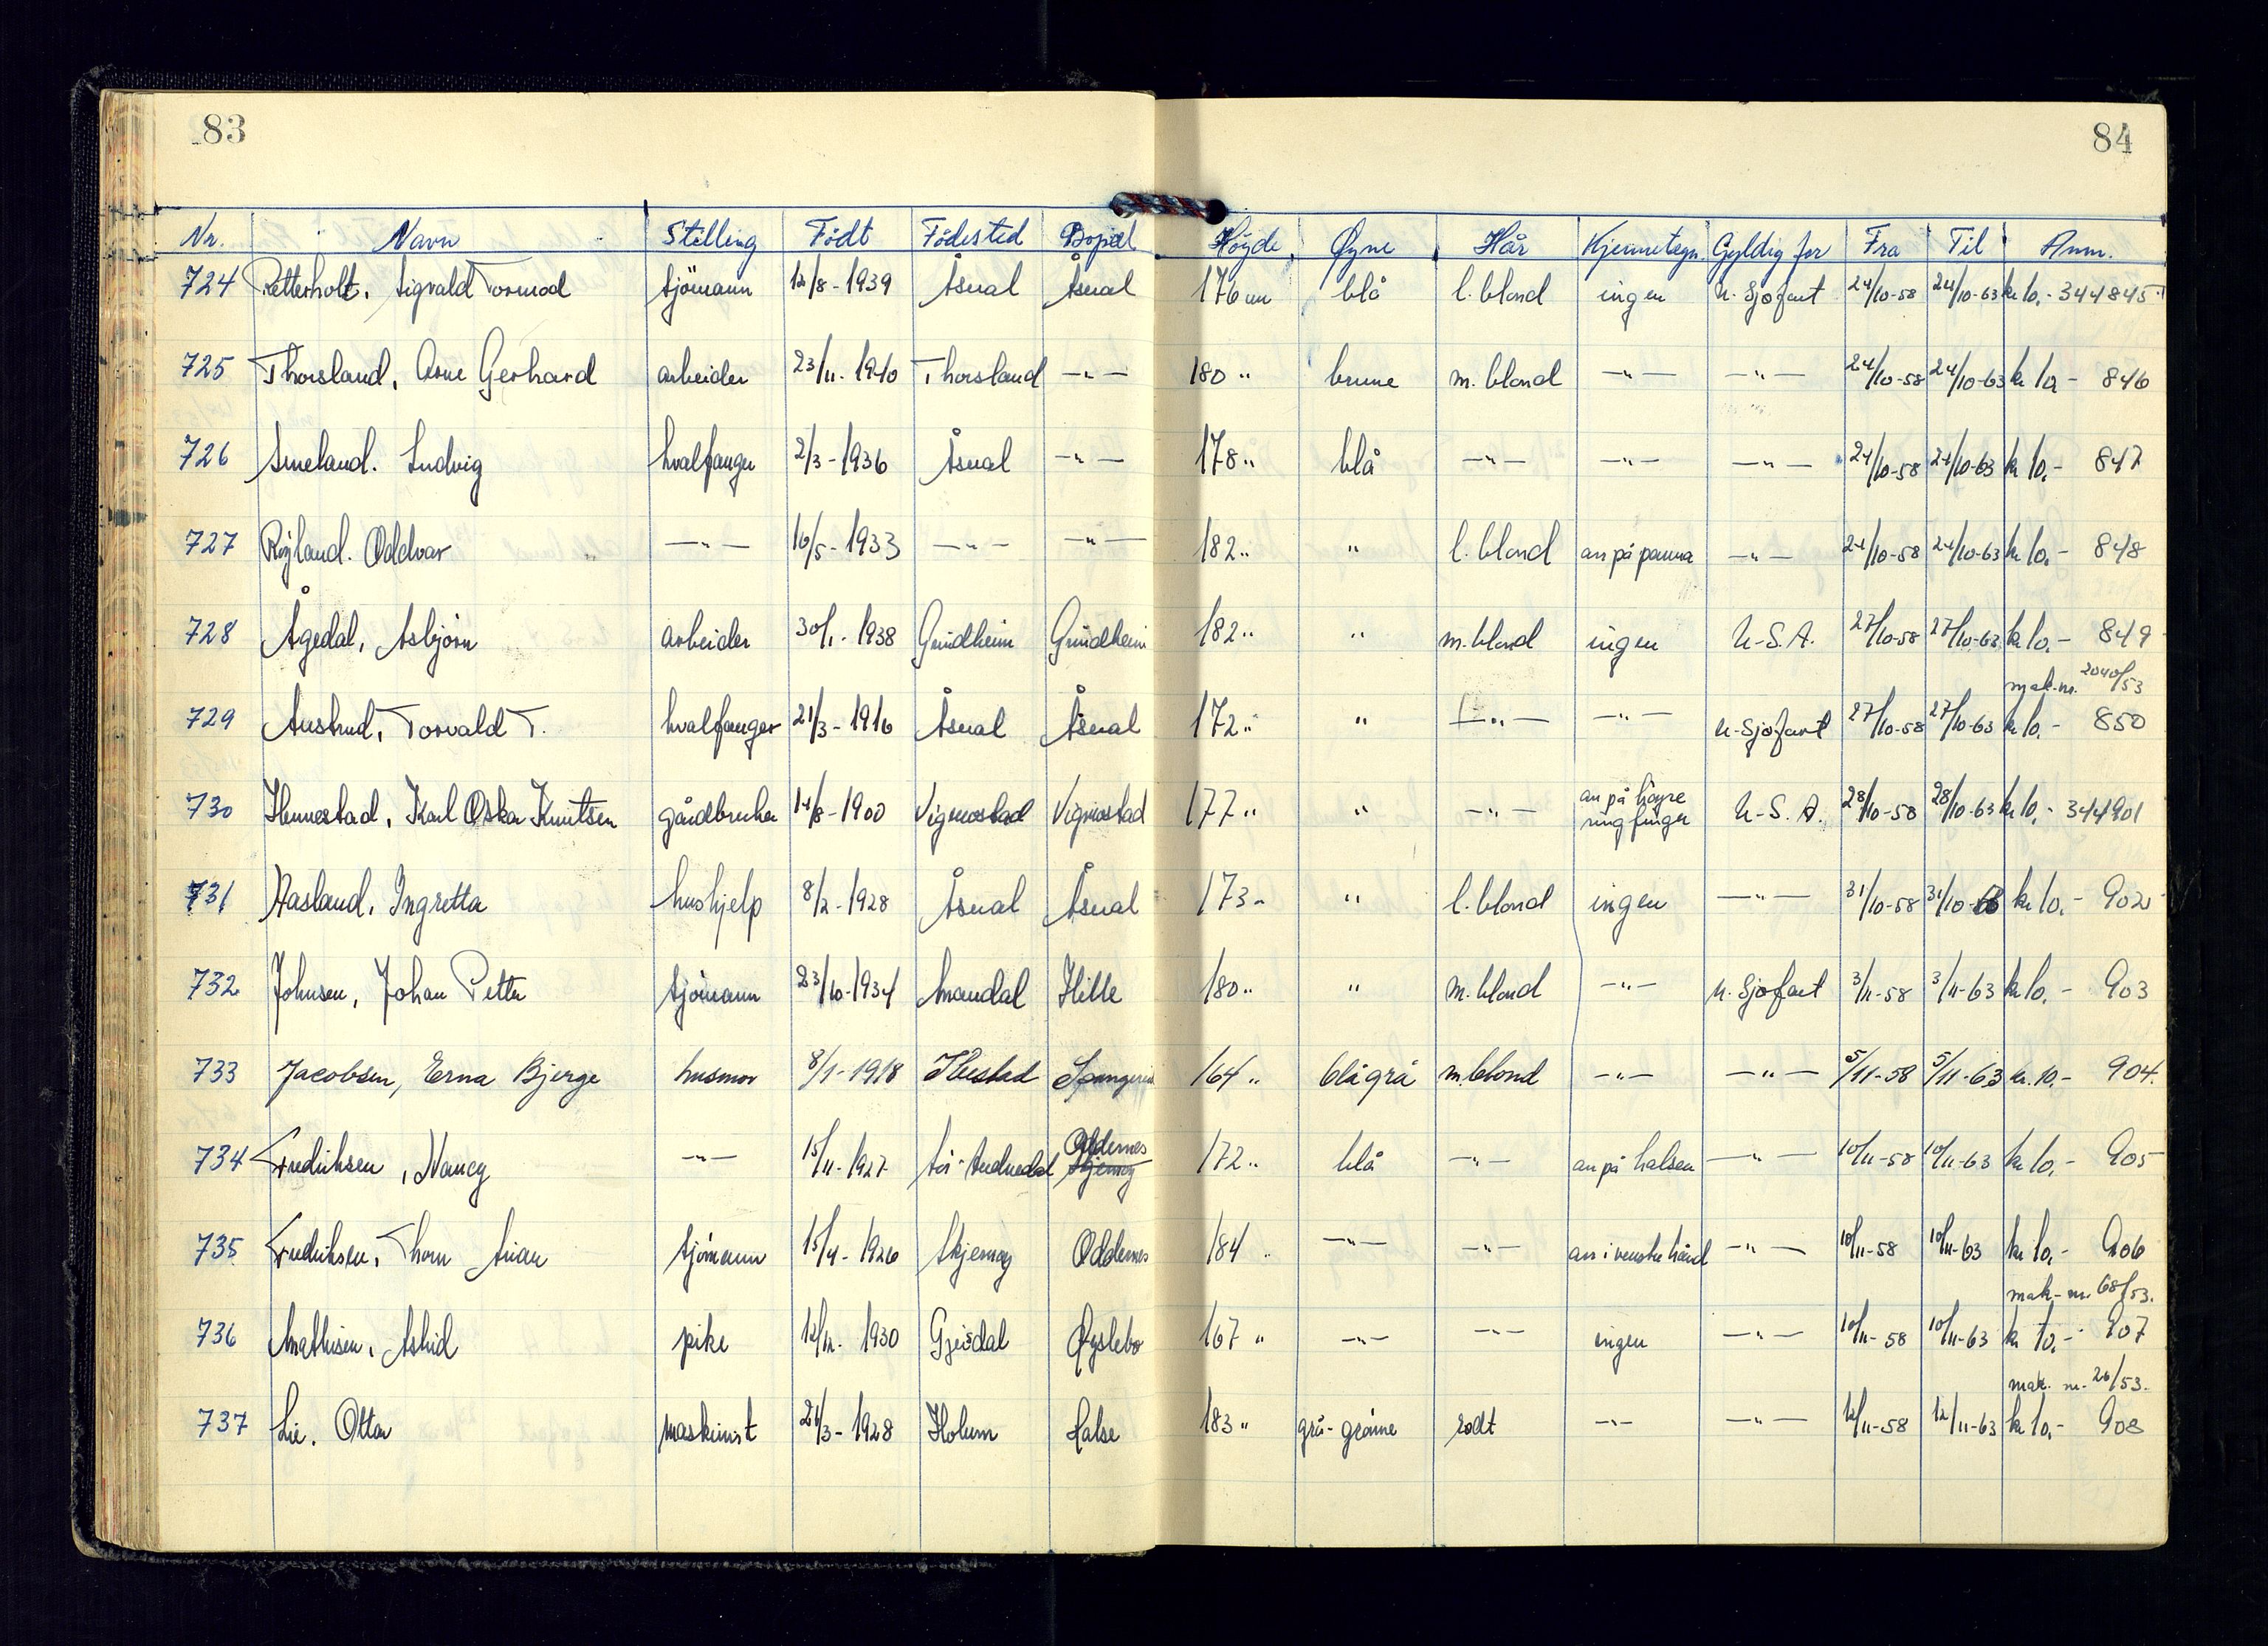 83
84
Nr. Navn Stilling Födt Födested Bopel Höyde Øyne Hår Kjennetegn Gyldig for Fra Til Anm.
724 Retterholt, Sigvald Tormod sjömann 12/8-1939 Åseral Åseral 176 cm blå l. blond ingen u. Sjøfart 24/10-58 24/10-63 kr 10.- 344845
725 Thorsland, Arne Gerhard arbeider 23/11-1940 Thorsland —„— 180 „ brune m. blond —„— —„— 24/10-58 24/10-63 kr 10,- 846
726 Smeland. Ludvig hvalfanger 2/3-1936 Åseral —„— 178 „ blå —„— —„— —„— 24/10-58 24/10-63 kr 10.- 847
727 Røyland. Oddvar —„— 16/5-1933 —„— —„— 182 „ „ l. blond arr på panna —„— 24/10-58 24/10-63 kr 10.- 848
728 Ågedal, Asbjörn arbeider 30/1-1938 Grindheim Grindheim 182 „ „ m. blond ingen U-S.A. 27/10-58 27/10-63 kr 10.- 849
mak. nr. 2040/53
729 Austrud, Torvald T. hvalfanger 21/3-1916 Åseral Åseral 172 „ „ —„— —„— u-Sjøfart 27/10-58 27/10-63 kr 10.- 850
730 Hennestad, Karl Oskar Knutsen gårdbruker 14/8-1900 Vigmostad Vigmostad 177 „ „ —„— arr på høyre ringfinger U-S.A. 28/10-58 28/10-63 kr 10.- 344901
731 Aasland, Ingretta hushjelp 8/2-1928 Åseral Åseral 173 „ „ l. blond ingen —„— 31/10-58 31/10- kr 10.- 902
732 Johnsen, Johan Petter sjömann 23/10-1934 Mandal Hille 180 „ „ m. blond —„— u. Sjøfart 3/11-58 3/11-63 kr 10.- 903
733 Jacobsen, Erna Bjerge husmor 8/1-1918 Spangereid 164 „ blågrå m. blond —„— —„— 5/11-58 5/11-63 kr. 10.- 904.
734 Fredriksen, Nancy —„— 15/11-1927 Sör-Audnedal Oddernes Skjernøy 172 „ blå —„— arr på halsen —„— 10/11-58 10/11-63 kr 10.- 905
735 Fredriksen, Thom Arian sjömann 15/4-1926 Skjernøy Oddernes 184 „ —„— —„— arr i venstre hånd —„— 10/11-58 10/11-63 kr 10.- 906
mak-nr. 68/53.
736 Mathisen, Astrid pike 12/12-1930 Gjesdal Øyslebø 167 „ —„— —„— ingen —„— 10/11-58 10/11-63 kr 10.- 907
mak. nr. 26/53.
737 Lie. Ottar maskinist 21/3-1928 Holum Halse 183 „ grå-grönne rødt —„— —„— 12/11-58 12/11-63 kr 10.- 908